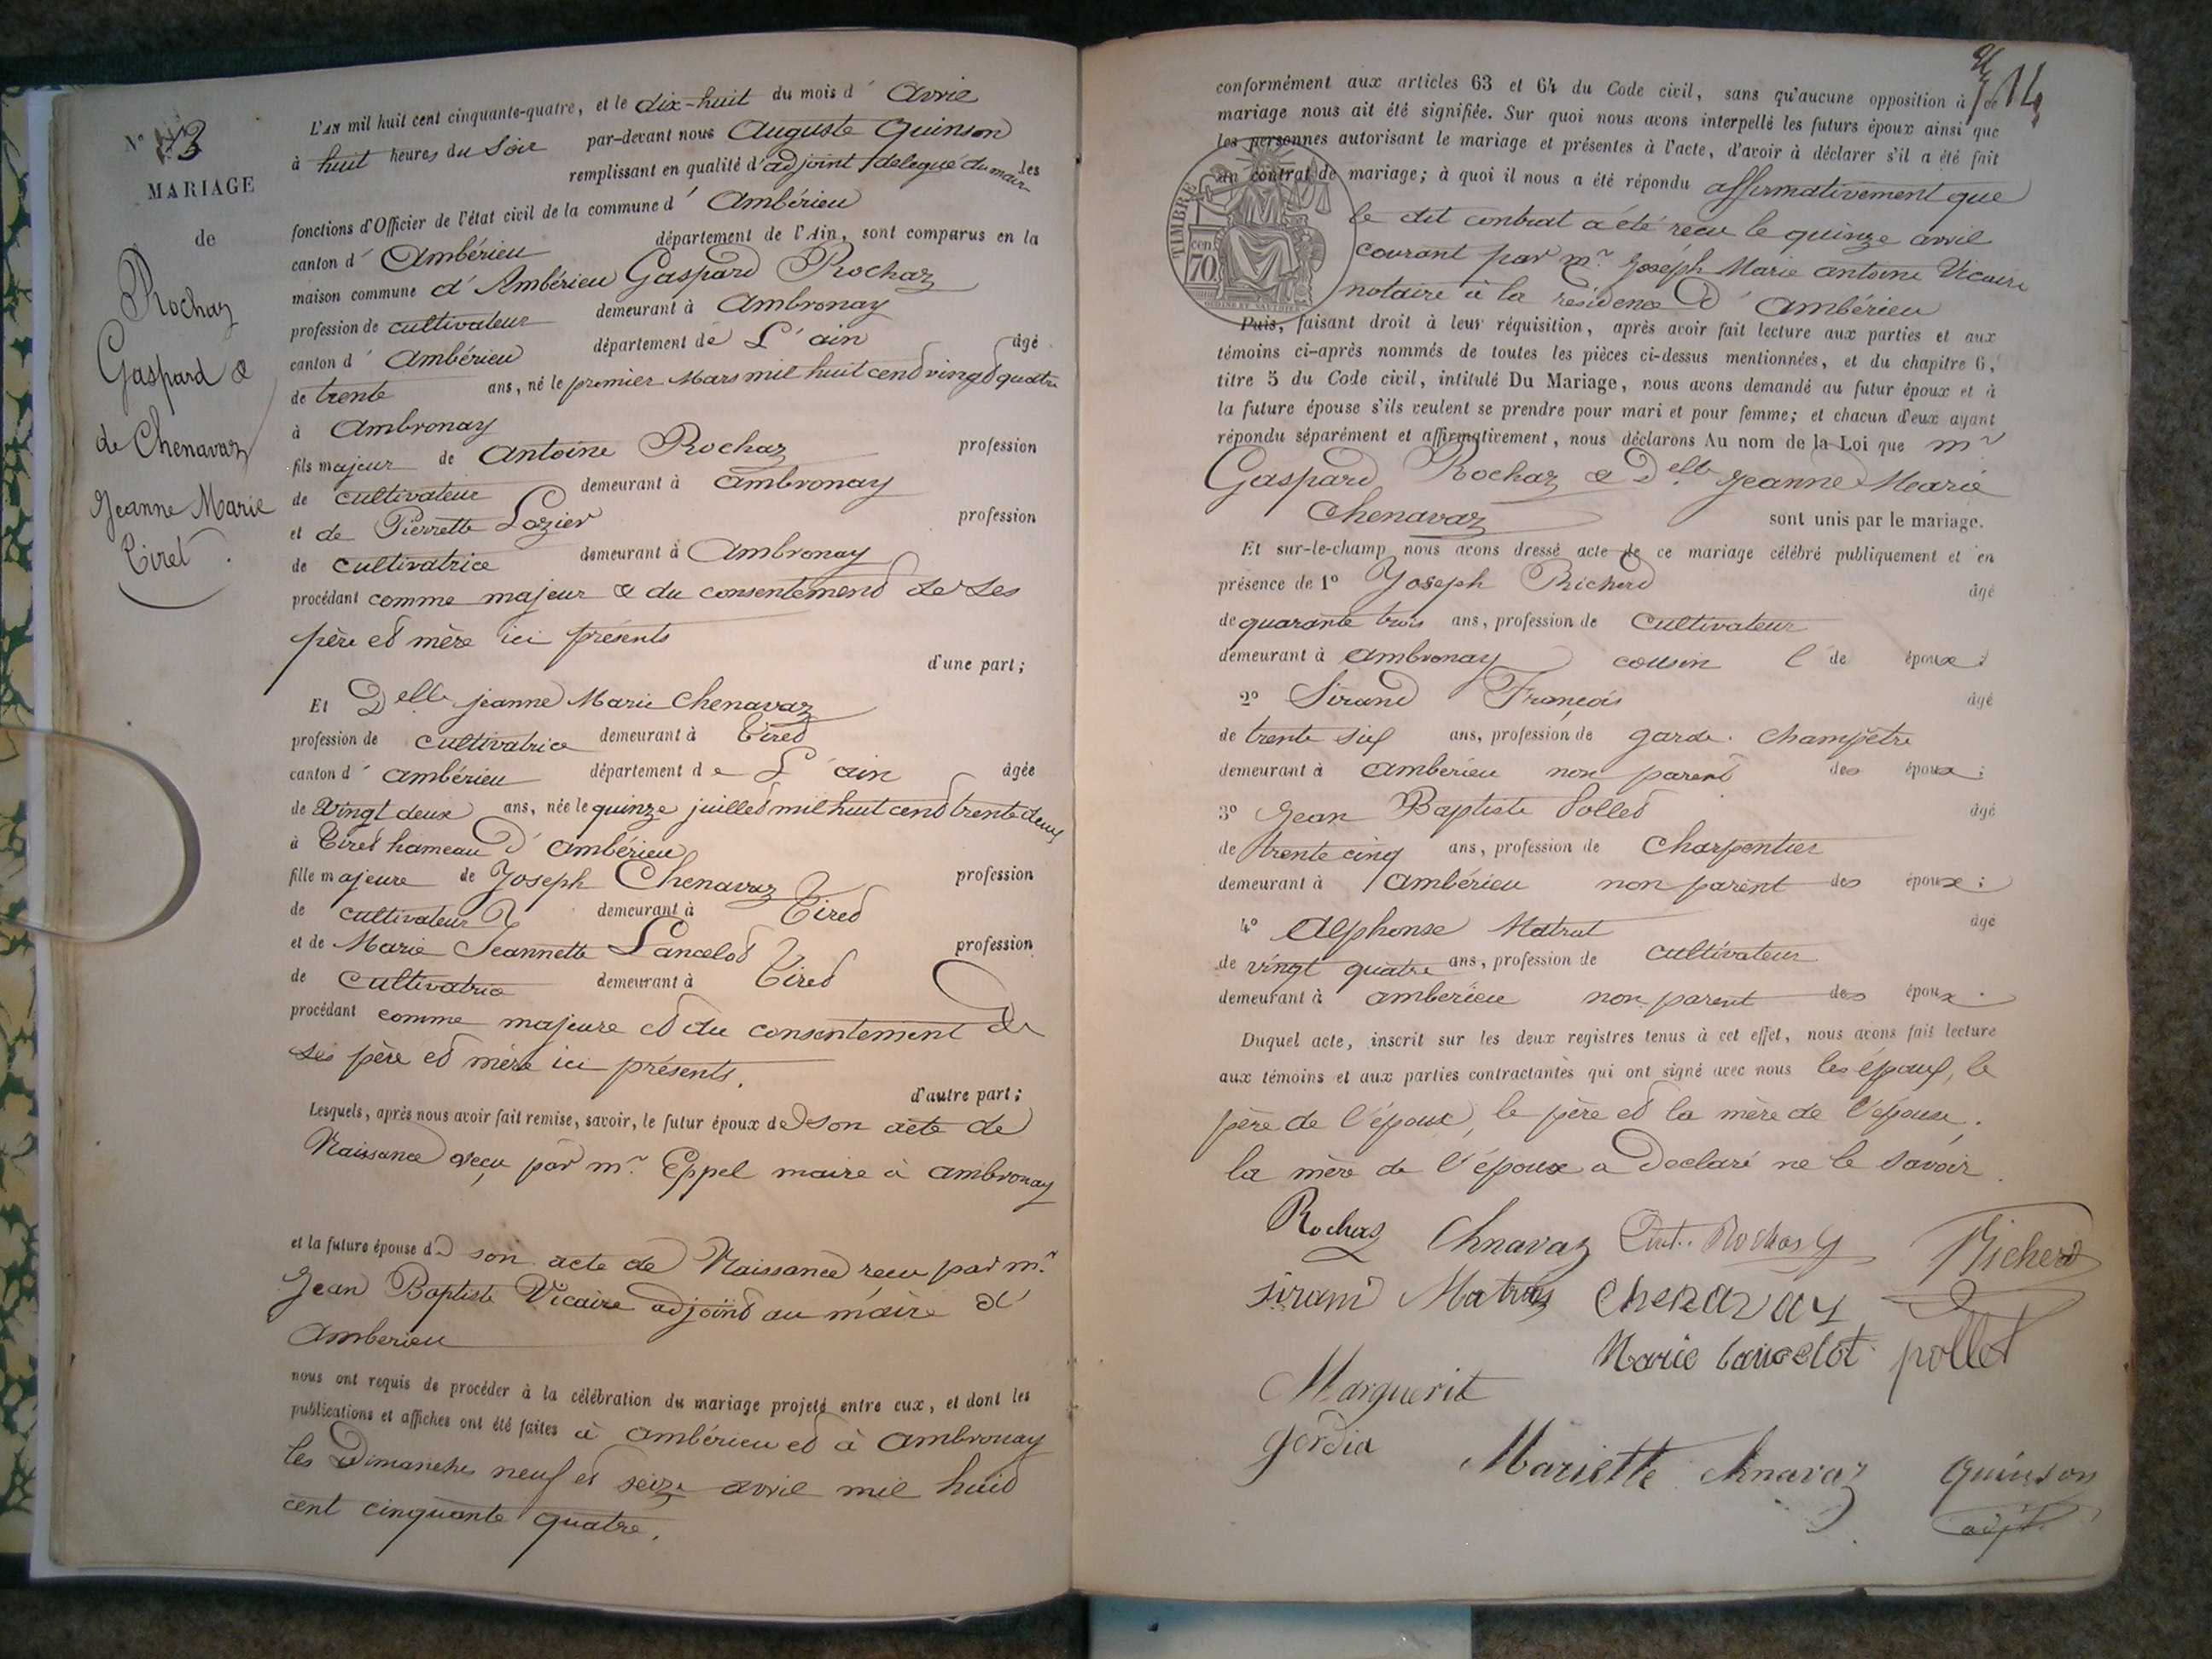 N° 13
MARIAGE
de
Rochaz
Gaspard &
de Chenavaz
Jeanne Marie
Tiret.
L'AN mil huit cent cinquante-quatre, et le dix-huit du mois d' Avril
à huit heures du soir par-devant nous Auguste Quinson
remplissant en qualité d'adjoint délégué du maire les
fonctions d'Officier de l'état civil de la commune d' Ambérieu
canton d' Ambérieu département de l'Ain, sont comparus en la
maison commune d'Ambérieu Gaspard Rochaz
profession de cultivateur demeurant à Ambronay
canton d' Ambérieu département de L'ain âgé
de trente ans, né le premier Mars mil huit cent vingt quatre
à Ambronay
fils majeur de Antoine Rochaz profession
de cultivateur demeurant à Ambronay
et de Pierrette Lozier profession
de cultivatrice demeurant à Ambronay
procédant comme majeur & du consentement de ses
père et mère ici présents
d'une part;
Et Delle jeanne Marie Chenavaz
profession de cultivatrice demeurant à Tiret
canton d' ambérieu département de L'ain âgée
de vingt deux ans, née le quinze juillet mil huit cent trente deux
à Tiret hameau d'ambérieu
fille majeure de Joseph Chenavaz profession
de cultivateur demeurant à Tiret
et de Marie Jeannette Lancelot profession
de cultivatrice demeurant à Tiret
procédant comme majeure et du consentement de
ses père et mère ici présents.
d'autre part;
Lesquels, après nous avoir fait remise, savoir, le futur époux de son acte de
Naissance reçu par mr. Eppel maire à ambronay
et la future épouse de son acte de Naissance recu par mr.
Jean Baptiste Vicaire adjoint au maire d'
Amberieu
nous ont requis de procéder à la célébration du mariage projeté entre eux, et dont les
publications et affiches ont été faites à ambérieu et à Ambronay
les Dimanches neuf et seize avril mil huit
cent cinquante quatre.
14
conformément aux articles 63 et 64 du Code civil, sans qu'aucune opposition à ce
mariage nous ait été signifiée. Sur quoi nous avons interpellé les futurs époux ainsi que
les personnes autorisant le mariage et présentes à l'acte, d'avoir à déclarer s'il a été fait
un contrat de mariage; à quoi il nous a été répondu affirmativement que
TIMBRE
70
le dit contrat a été recu le quinze avril
courant par mr. Joseph Marie antoine Vicaire
notaire à la résidence d'ambérieu
Puis, faisant droit à leur réquisition, après avoir fait lecture aux parties et aux
témoins ci-après nommés de toutes les pièces ci-dessus mentionnées, et du chapitre 6,
titre 5 du Code civil, intitulé Du Mariage, nous avons demandé au futur époux et à
la future épouse s'ils veulent se prendre pour mari et pour femme; et chacun d'eux ayant
répondu séparément et affirmativement, nous déclarons Au nom de la Loi que mr
Gaspard Rochaz & Delle jeanne Marie
Chenavaz sont unis par le mariage.
Et sur-le-champ nous avons dressé acte de ce mariage célébré publiquement et en
présence de 1° Joseph Richerd âgé
de quarante trois ans, profession de cultivateur
demeurant à ambronay cousin de l'époux;
2° Sirand François âgé
de trente six ans, profession de garde champêtre
demeurant à amberieu non parent des époux;
3° Jean Baptiste Pollet âgé
de trente cinq ans, profession de Charpentier
demeurant à ambérieu non parent des époux;
4° Alphonse Matrat âgé
de vingt quatre ans, profession de cultivateur
demeurant à amberieu non parent des époux.
Duquel acte, inscrit sur les deux registres tenus à cet effet, nous avons fait lecture
aux témoins et aux parties contractantes qui ont signé avec nous les époux, le
père de l'époux, le père et la mère de l'épouse.
la mère de l'époux a declaré ne le savoir.
Rochaz Chnavaz Rochas Richerd
sirand Matras Chenavaz
Marie lancelot pollet
Marguerit
gordia
Mariette Chnavaz quinson
adjt.